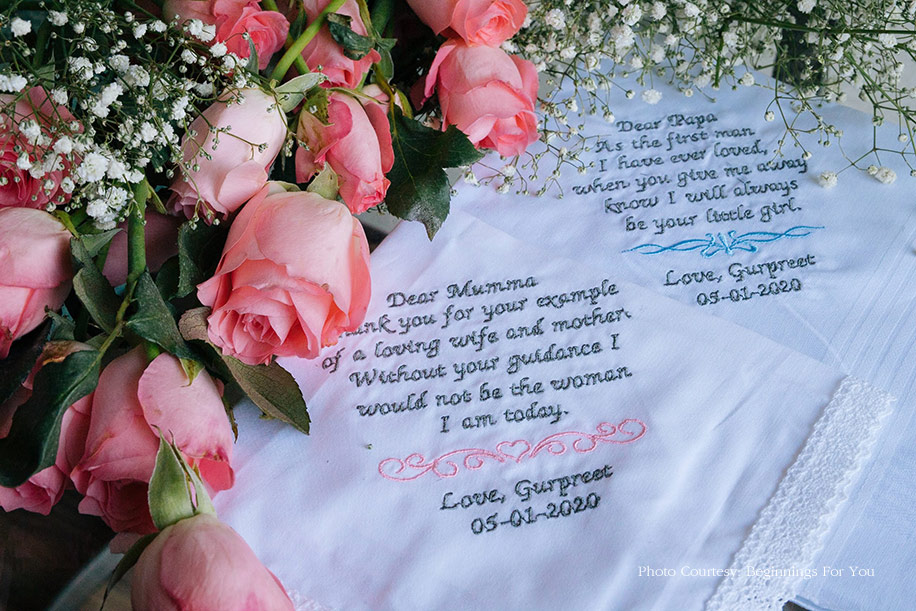 Dear Papa
As the first man
I have ever loved,
when you give me away
know I will always
be your little girl.
Love, Gurpreet
05-01-2020
Dear Mumma
Thank you for your example
of a loving wife and mother.
Without your guidance I
would not be the woman
I am today.
Love, Gurpreet
05-01-2020
Photo Courtesy: Beginnings For You